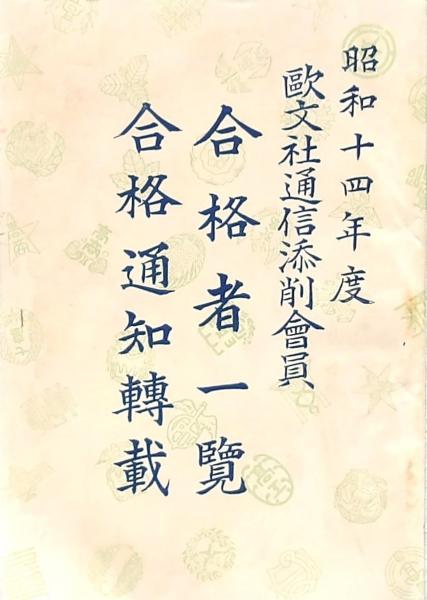 昭和十四年度
歐文社通信添削會員
合格者一覽
合格通知轉載